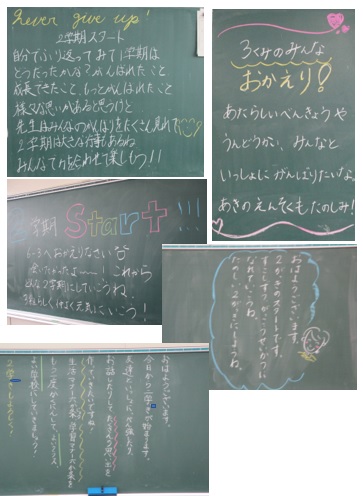 never give up!
2学期スタート
自分でふり返ってみて1学期は
どうだったかな？がんばれたこと
成長できたこと、もっとがんばれたこと
様々な思いがあると思うけど
先生はみんなのがんばりをたくさん見れて
2学期は大きな行事もあるね
みんなで力を合わせて楽しもう!!
3くみのみんな
おかえり!
あたらしいべんきょうや
うんどうかい、みんなと
いっしょにがんばりたいな。
あきのえんそくもたのしみ!
2学期 Start!!!
6-3へおかえりなさい
会いたかったよ〜!これから
どんな2学期にしていこうね。
おはようございます。
2がっきのスタートです。
すこしずつがっこうせいかつに
なれていこうね。
たのしい2がっきにしようね。
おはようございます。
今日から二学期が始まります。
友達といっしょに
お話したりして
作っていきたいですね!
よい学校にしていきましょう!
2学期もよろしく!